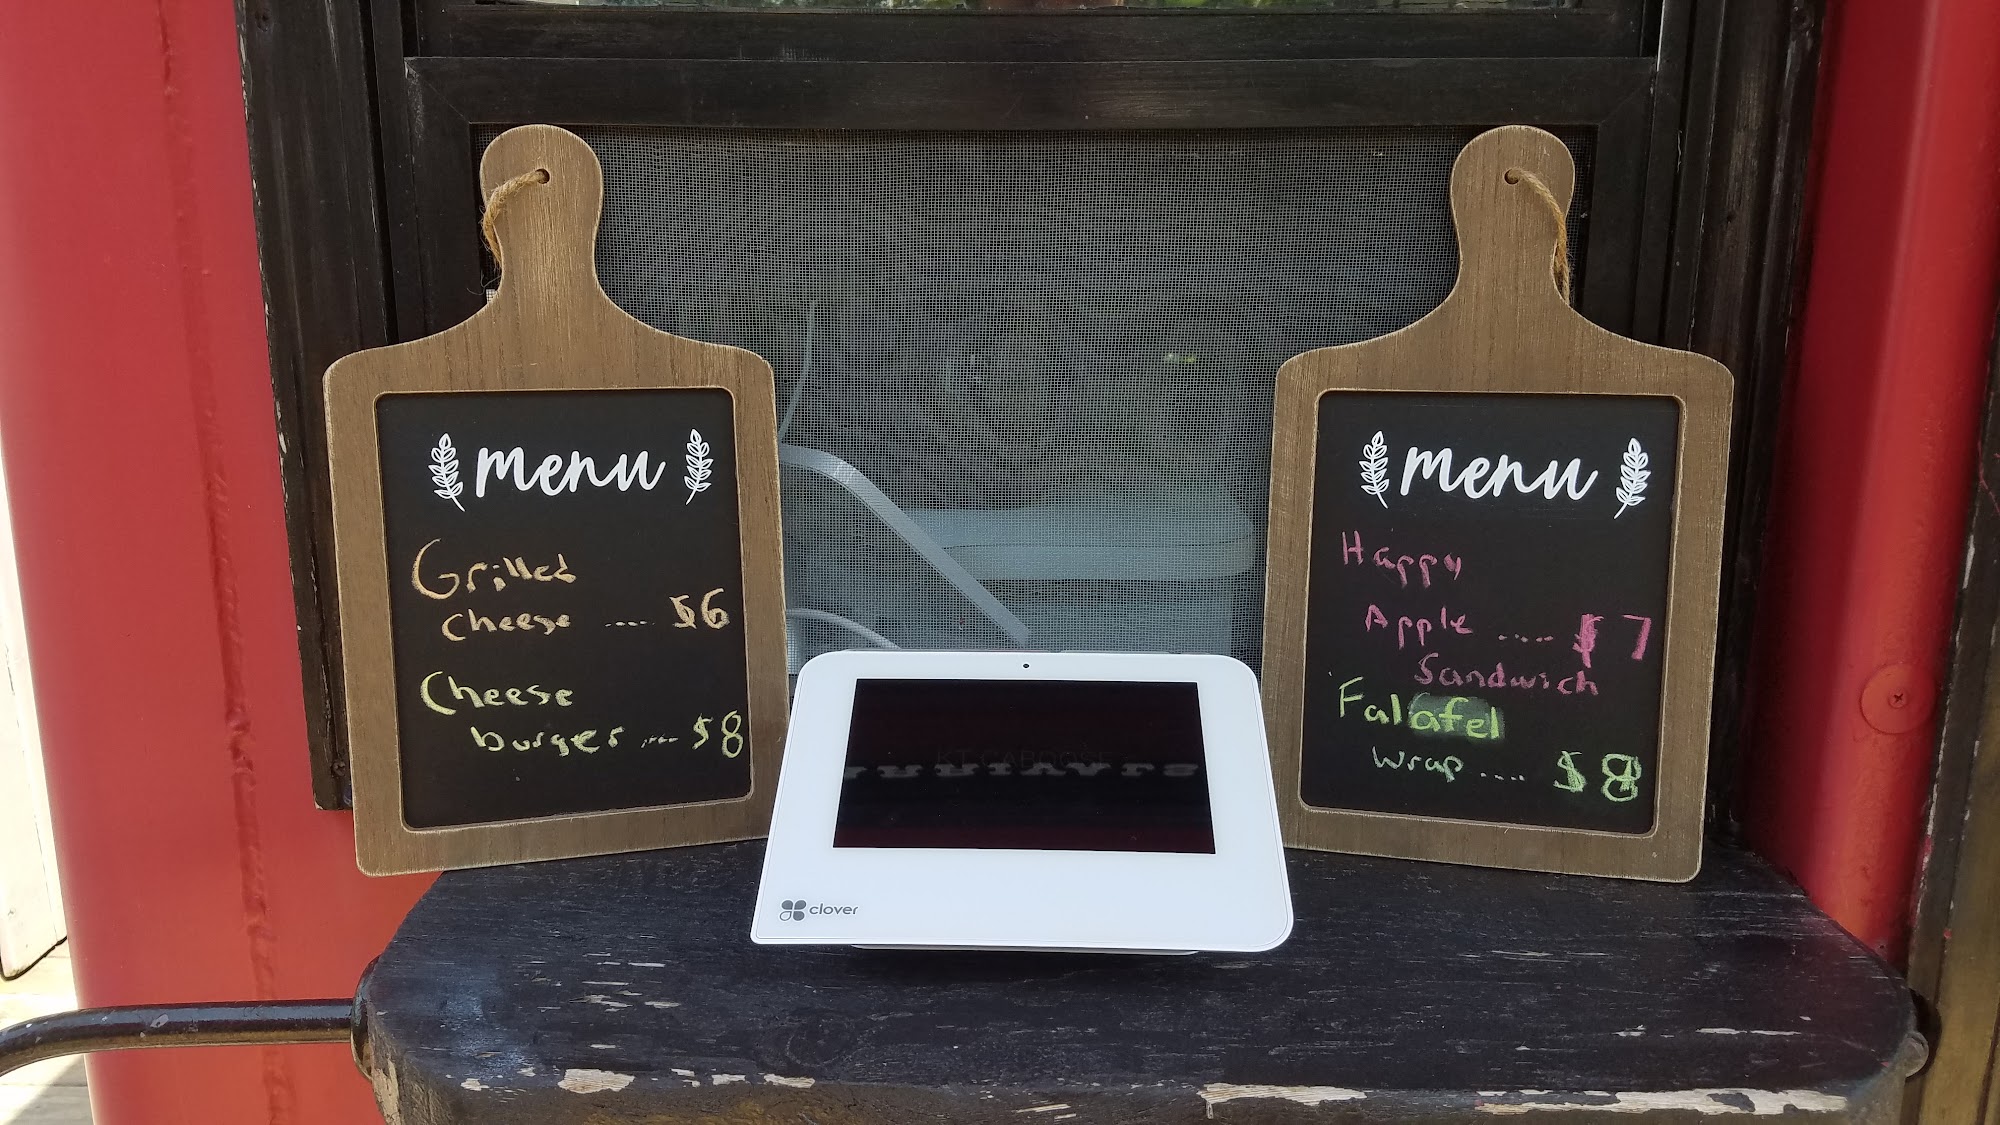 menu
Grilled
cheese .... $6
Cheese
burger .... $8
menu
Happy
Apple .... $7
Sandwich
Falafel
wrap .... $8
KT CABOOSE
clover